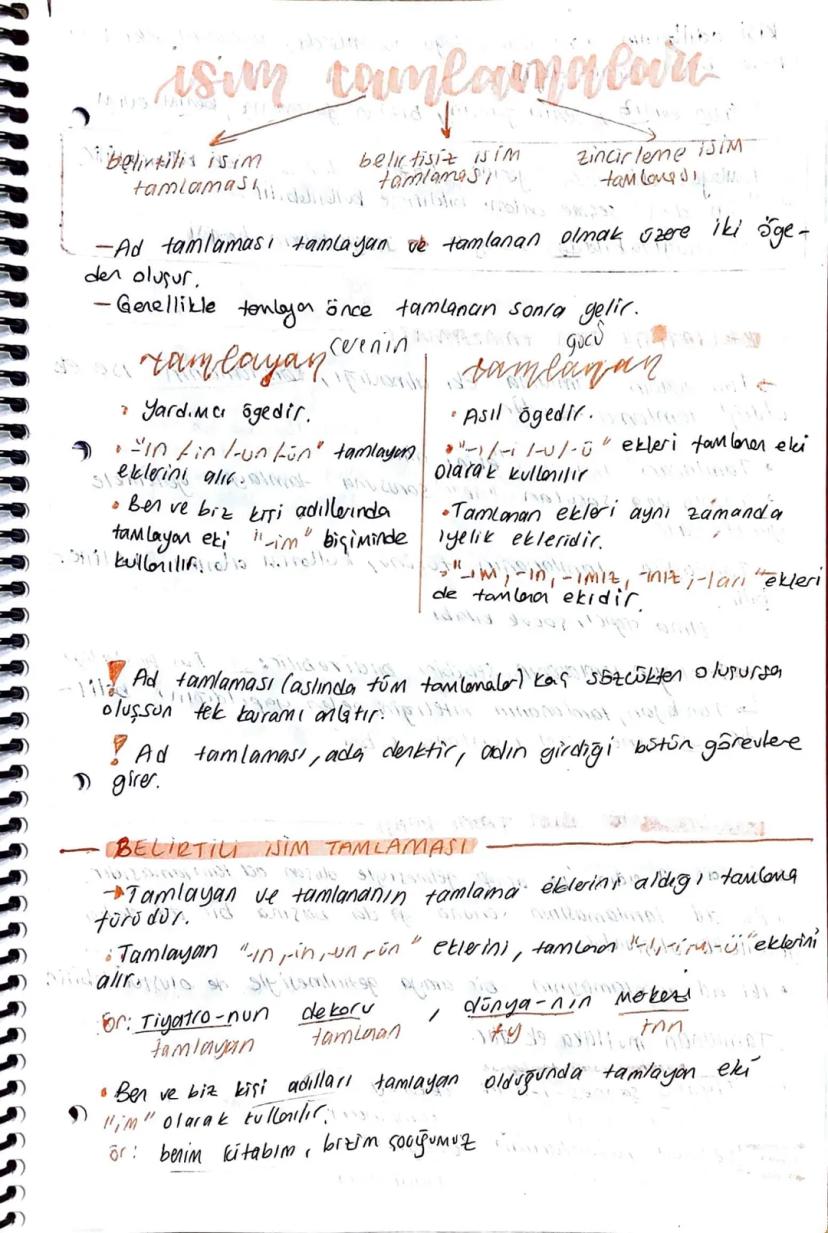 isim tamlamaları
belirtili isim tamlaması
belirtisiz isim tamlaması
zincirleme isim tamlaması
-Ad tamlaması tamlayan ve tamlanan olmak üzere iki öge-
den oluşur.
- Genellikle tamlayan önce tamlanan sonra gelir.
tamlayan
• Yardımcı ögedir.
• "-ın /-in /-un /-ün" tamlayan
eklerini alır.
• Ben ve biz kişi adıllarında
tamlayan eki "-im" biçiminde
kullanılır.
gücü
tamlanan
• Asıl ögedir.
• "-ı /-i /-u /-ü" ekleri tamlanan eki
olarak kullanılır
• Tamlanan ekleri aynı zamanda
iyelik ekleridir.
→ "-ım, -ın, -ımız, -ınız, -ları" ekleri
de tamlanan ekidir.
! Ad tamlaması (aslında tüm tamlamalar) kaç sözcükten oluşursa
oluşsun tek kavramı anlatır.
! Ad tamlaması, ada denktir, adın girdiği bütün görevlere
girer.
BELİRTİLİ İSİM TAMLAMASI
→ Tamlayan ve tamlananın tamlama eklerini aldığı tamlama
türüdür.
• Tamlayan "-ın, -in, -un, -ün" eklerini, tamlanan "-ı, -i, -u, -ü" eklerini
alır.
ör: Tiyatro-nun dekoru , dünya-nın merkezi
tamlayan tamlanan ty tnn
• Ben ve biz kişi adılları tamlayan olduğunda tamlayan eki
"im" olarak kullanılır.
ör: benim kitabım, bizim çocuğumuz